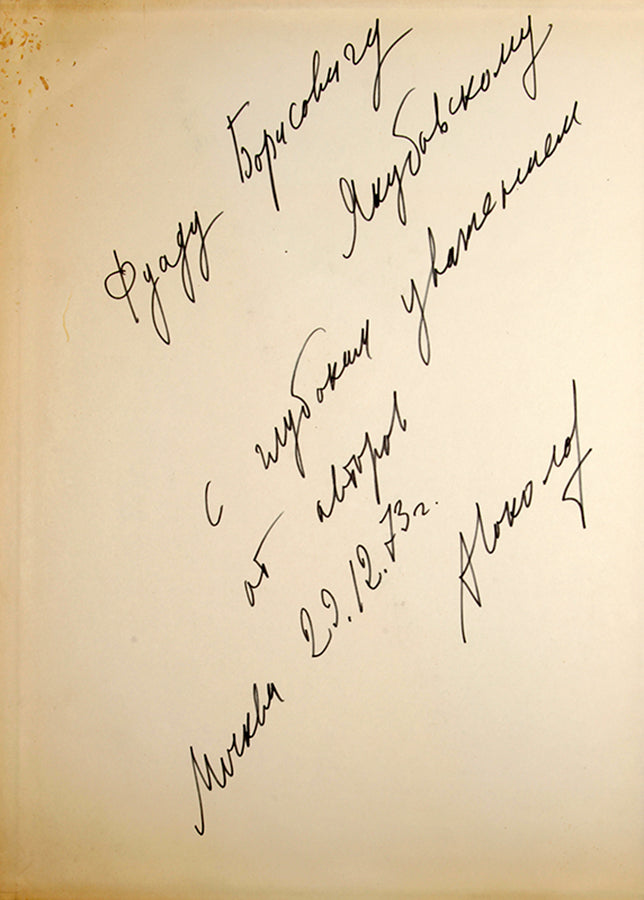 Фуаду Борисовичу
Якубовскому
с глубоким уважением
от авторов
Москва 22.12.73г.